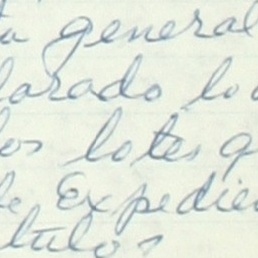 ta general
larado lo
los lotes q
de Expedie
títulos